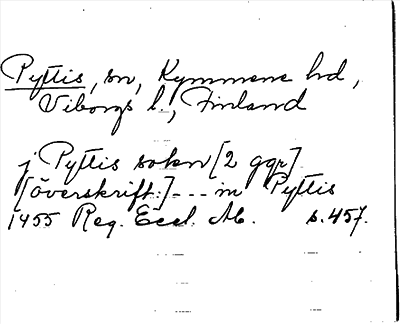 Pyttis, sn, Kymmene hd,
Viborgs l., Finland
j Pyttis sokn [2 ggr].
[överskrift:] --- in Pyttis
1455 Reg. Eccl. Ab. s. 457.